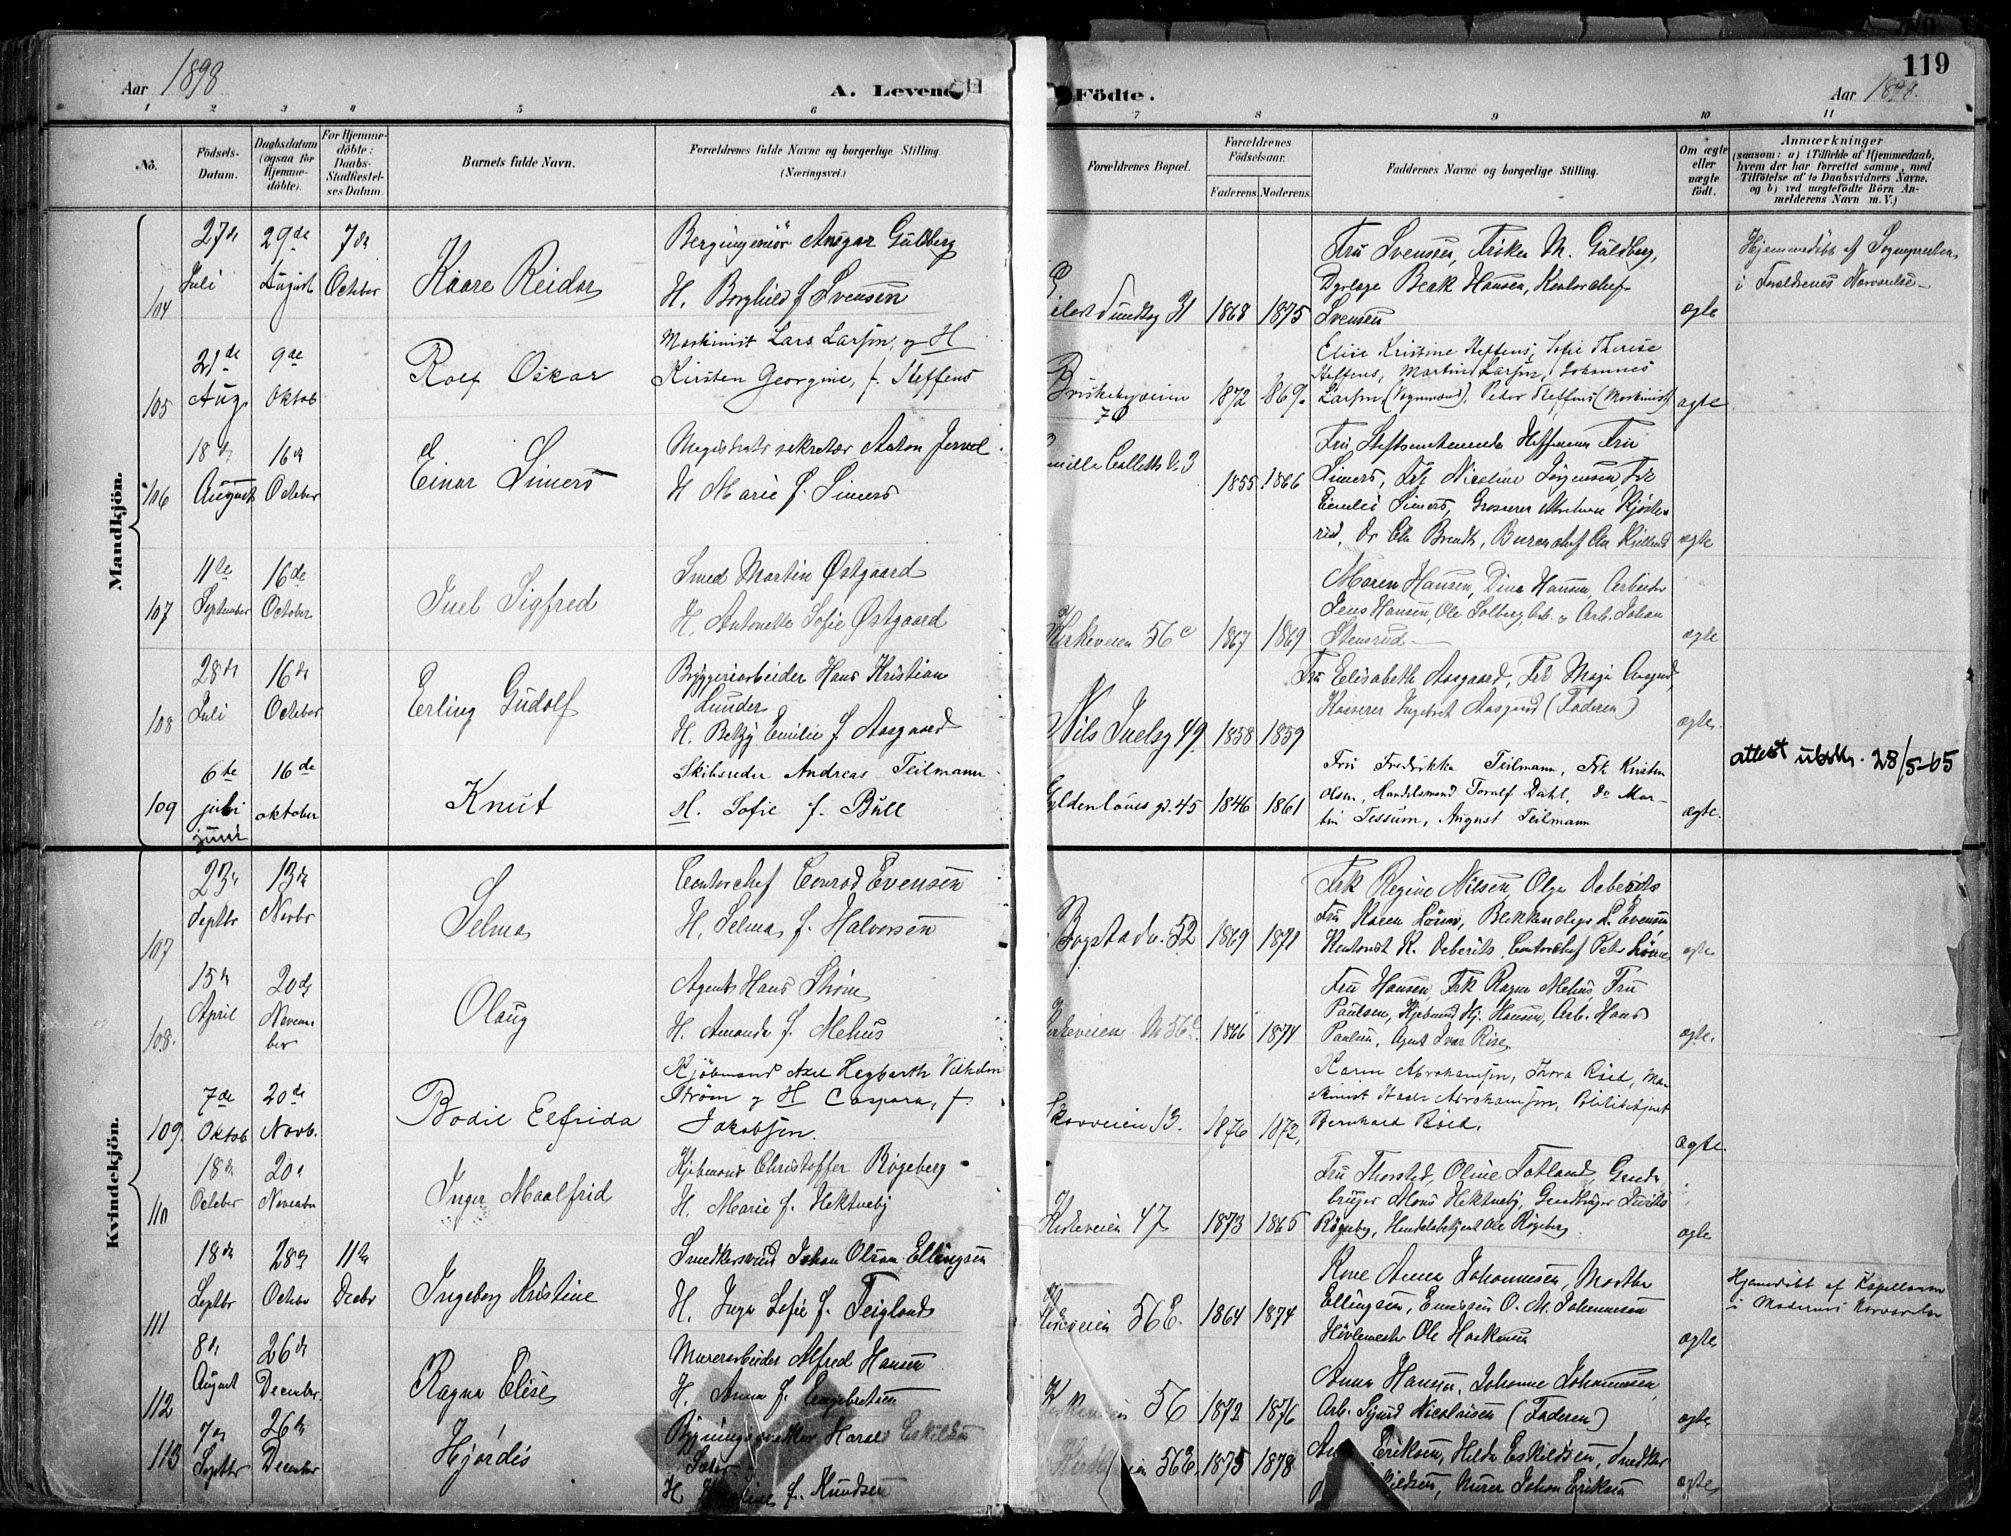 119
Aar 1898
A. Levende
Födte.
Aar 1898.
1 2 3 4 5 6 7 8 9 10 11
No.
Födsels-
Datum.
Daabsdatum
(ogsaa for
Hjemme-
döbte).
For Hjemme-
döbte:
Daabs-
Stadfæstel-
ses Datum.
Barnets fulde Navn.
Forældrenes fulde Navne og borgerlige Stilling.
(Næringsvei.)
Forældrenes Bopæl.
Forældrenes
Födselsaar.
Faderens. Moderens.
Faddernes Navne og borgerlige Stilling.
Om ægte
eller
uægte
födt.
Anmærkninger
(saasom: a) i Tilfælde af Hjemmedaab,
hvem der har forrettet samme, med
Tilföielse af to Daabsvidners Navne,
og b) ved uægtefödte Börn An-
melderens Navn m. V.)
Mandkjön.
104
27de
Juli
29de
August
7de
October
Kaare Reidar
Bergingeniör Ansgar Guldberg
H. Borghild f. Svensen
31
1868 1875
Fru Svensen, Fröken M. Guldberg,
Dyrlæge Beak Hansen, Kontorchef
Svensen
ægte
Hjemmedöbt af Sognepresten
i Forældrenes Nærværelse
105
21de
Aug
9de
Oktob
Rolf Oskar
Maskinist Lars Larsen, og H
Kirsten Georgine, f. Steffens
Briskebyveien
70
1872 1869.
Elise Kristine Steffens, Sofie Therese
Steffens, Martin Larsen, Johannes
Larsen (Vognmand), Peter Steffens (Maskinist)
ægte
106
18de
August
16de
October
Einar Simers
Magistratssekretær Anton Jervel
H Marie f. Simers
Camilla Colletts v. 3
1855 1866
Simers, Frk Nicoline Jörgensen, Frk
Emilie Simers, Grosserer
ægte
107
11te
September
16de
October
Juel Sigfred
Smed Martin Østgaard
H. Antonette Sofie Østgaard
Kirkeveien 56c
1867 1869
Maren Hansen, Dina Hansen, Arbeider
Jens Hansen, Ole Solberg, Arb. & Arb. Johan
Stensrud
ægte
108
28de
Juli
16de
October
Erling Gudolf
Bryggeriarbeider Hans Kristian
Lunder
H. Betzy Emilie f. Aasgaard
Nils Juelsg 49.
1858 1859
Fru Elisabeth Aasgaard, Frk Maja Aasgaard,
Kasserer Ingebret Aasgaard (Faderen)
ægte.
109
6te
juli
juni
16de
oktober
Knut
Skibsreder Andreas Teilmann
H. Sofie f. Bull
Gyldenlöves gd. 45
1846 1861
Fru Fredrikke Teilmann, Frk Kirsten
Olsen, Handelsmand Toralf Dahl, Dr Mar-
tin Tessum, August Teilmann
ægte.
attest utst. 28/5-65
Kvindekjön.
107
23de
Septbr
13de
Novbr
Selma
Contorchef Conrad Evensen
H. Selma f. Halvorsen
Bogstadv. 52
1869 1871
Frk Regine Nilsen Olga Deberitz
Fru Karen Löune, Blikkenslager L. Evensen
Kontorist K. Deberitz, Contorchef Peter Löune
ægte
108.
15de
April
20de
Novem-
ber
Olaug
Agent Hans Ström
H. Amanda f. Mehus
Kirkeveien 56c
1866 1874
Fru Hansen, Frk Ragna Mehus Fru
Paulsen, Kjöbmand Hj. Hansen, Arb. Hans
Paulsen, Agent Ivar Rise
ægte.
109.
7de
Oktob
20de
Novb.
Bodil Elfrida
Kjöbmand Axel Hegbarth Vilhelm
Ström og H Caspara, f.
Jakobsen.
Skovveien 13.
1876 1872,
Karen Abrahamsen, Thora Röed, Ma-
skinist Abrahamsen, Politibetjent
Bernhard Röed.
ægte
110
18de
October
20de
November
Inger Maalfrid
Kjöbmand Christoffer Rögeberg
H. Marie f. Hektueby
Kirkeveien 47
1873 1865
Fru Thorsted, Oline Totland, Gaard-
bruger Mons Hektueby, Gaardbruger
Rögeberg, Handelsbetjent Ole Rögeberg
ægte
111
18de
Septbr
28de
Octobr
11te
Decbr
Ingeborg Kristine
Snedkersvend Johan Olsen Ellingsen
H. Inga Sofie f. Teigland
Kirkeveien 56E.
1864 1874
Kone Anna Johannesen, Marthe
Ellingsen, O. M. Johannesen
Hövlemester Ole Haakonsen
ægte
Hjemmedöbt af Kapellanen
i Moderens Nærværelse
112
8de
August
26de
December.
Ragna Elise
Murerarbeider Alfred Hansen
H. Anna f. Engebretsen
Kirkeveien 56
1872 1876
Anna Hansen, Johanne Johannesen
Arb. Sigurd Nicolaisen (Faderen)
ægte
113
7de
Septbr
26de
December
Hjördis
Bygningssnekker Harald Eskildsen
Sæter
H f. Knudsen
Kirkeveien 56E.
1875 1878
Eriksen, Hilda Eskildsen, Snedker
Eskildsen, Murer Johan Eriksen
ægte